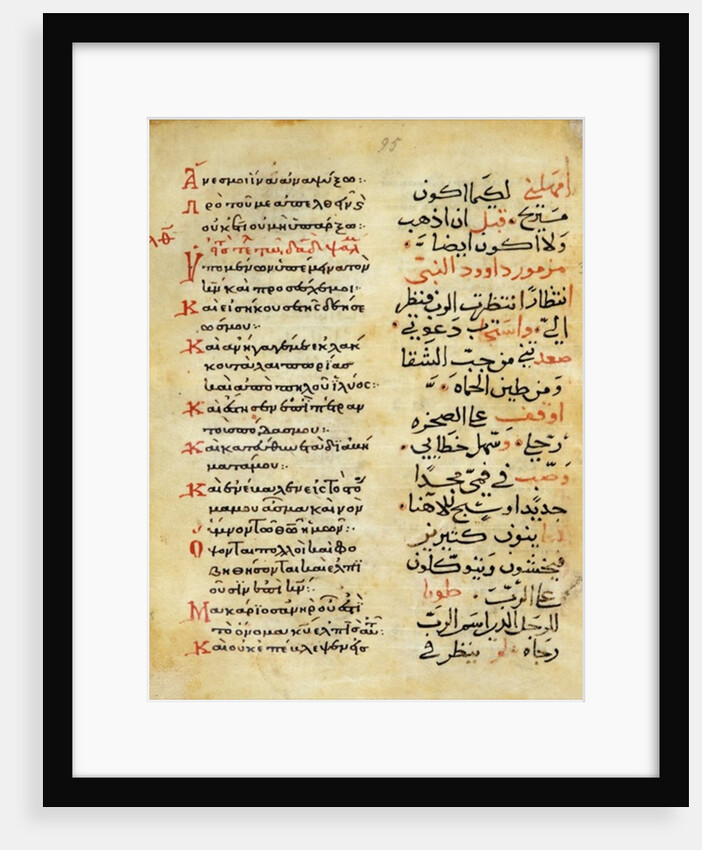 95
Ἄνες μοι ἵνα ἀναψύξω:
Πρὸ τοῦ με ἀπελθεῖν ϗ
οὐκέτι οὐ μὴ ὑπάρξω:
λθ
Ὑπομένων ὑπέμεινα τὸν
κν καὶ προσέσχε μοι:
Καὶ εἰσήκουσε τῆς δεήσε
ώς μου:
Καὶ ἀνήγαγέ με ἐκ λάκ
κου ταλαιπωρίας
καὶ ἀπὸ πηλοῦ ἰλύος:
Καὶ ἔστησεν ἐπὶ πέτραν
τοὺς πόδας μου:
Καὶ κατηύθυνε τὰ διαβή
ματά μου:
Καὶ ἐνέβαλεν εἰς τὸ στό
μα μου ᾆσμα καινόν
ὕμνον τῷ θῶ ἡμῶν:
Ὄψονται πολλοὶ καὶ φο
βηθήσονται καὶ ἐλπι
οῦσιν ἐπὶ κν:
Μακάριος ἀνὴρ οὗ ἐστι
τὸ ὄνομα κυ ἐλπὶς αὐτοῦ:
Καὶ οὐκ ἐπέβλεψεν εἰς
امهلني لكيما اكون
مستريح قبل ان اذهب
ولا اكون ايضا
مزمور داوود النبي
انتظارا انتظرت الرب فنظر
الي واستجب دعوتي
صعدني من جب الشقا
ومن طين الحماه
اوقف على الصخره
رجلي وسهل خطايي
وصب في فمي مجدا
جديدا وسبح لالاهنا
ينون كتيرين
فيخشون ويتوكلون
على الرب طوبا
للرجل الذي اسم الرب
رجاه ينظر في